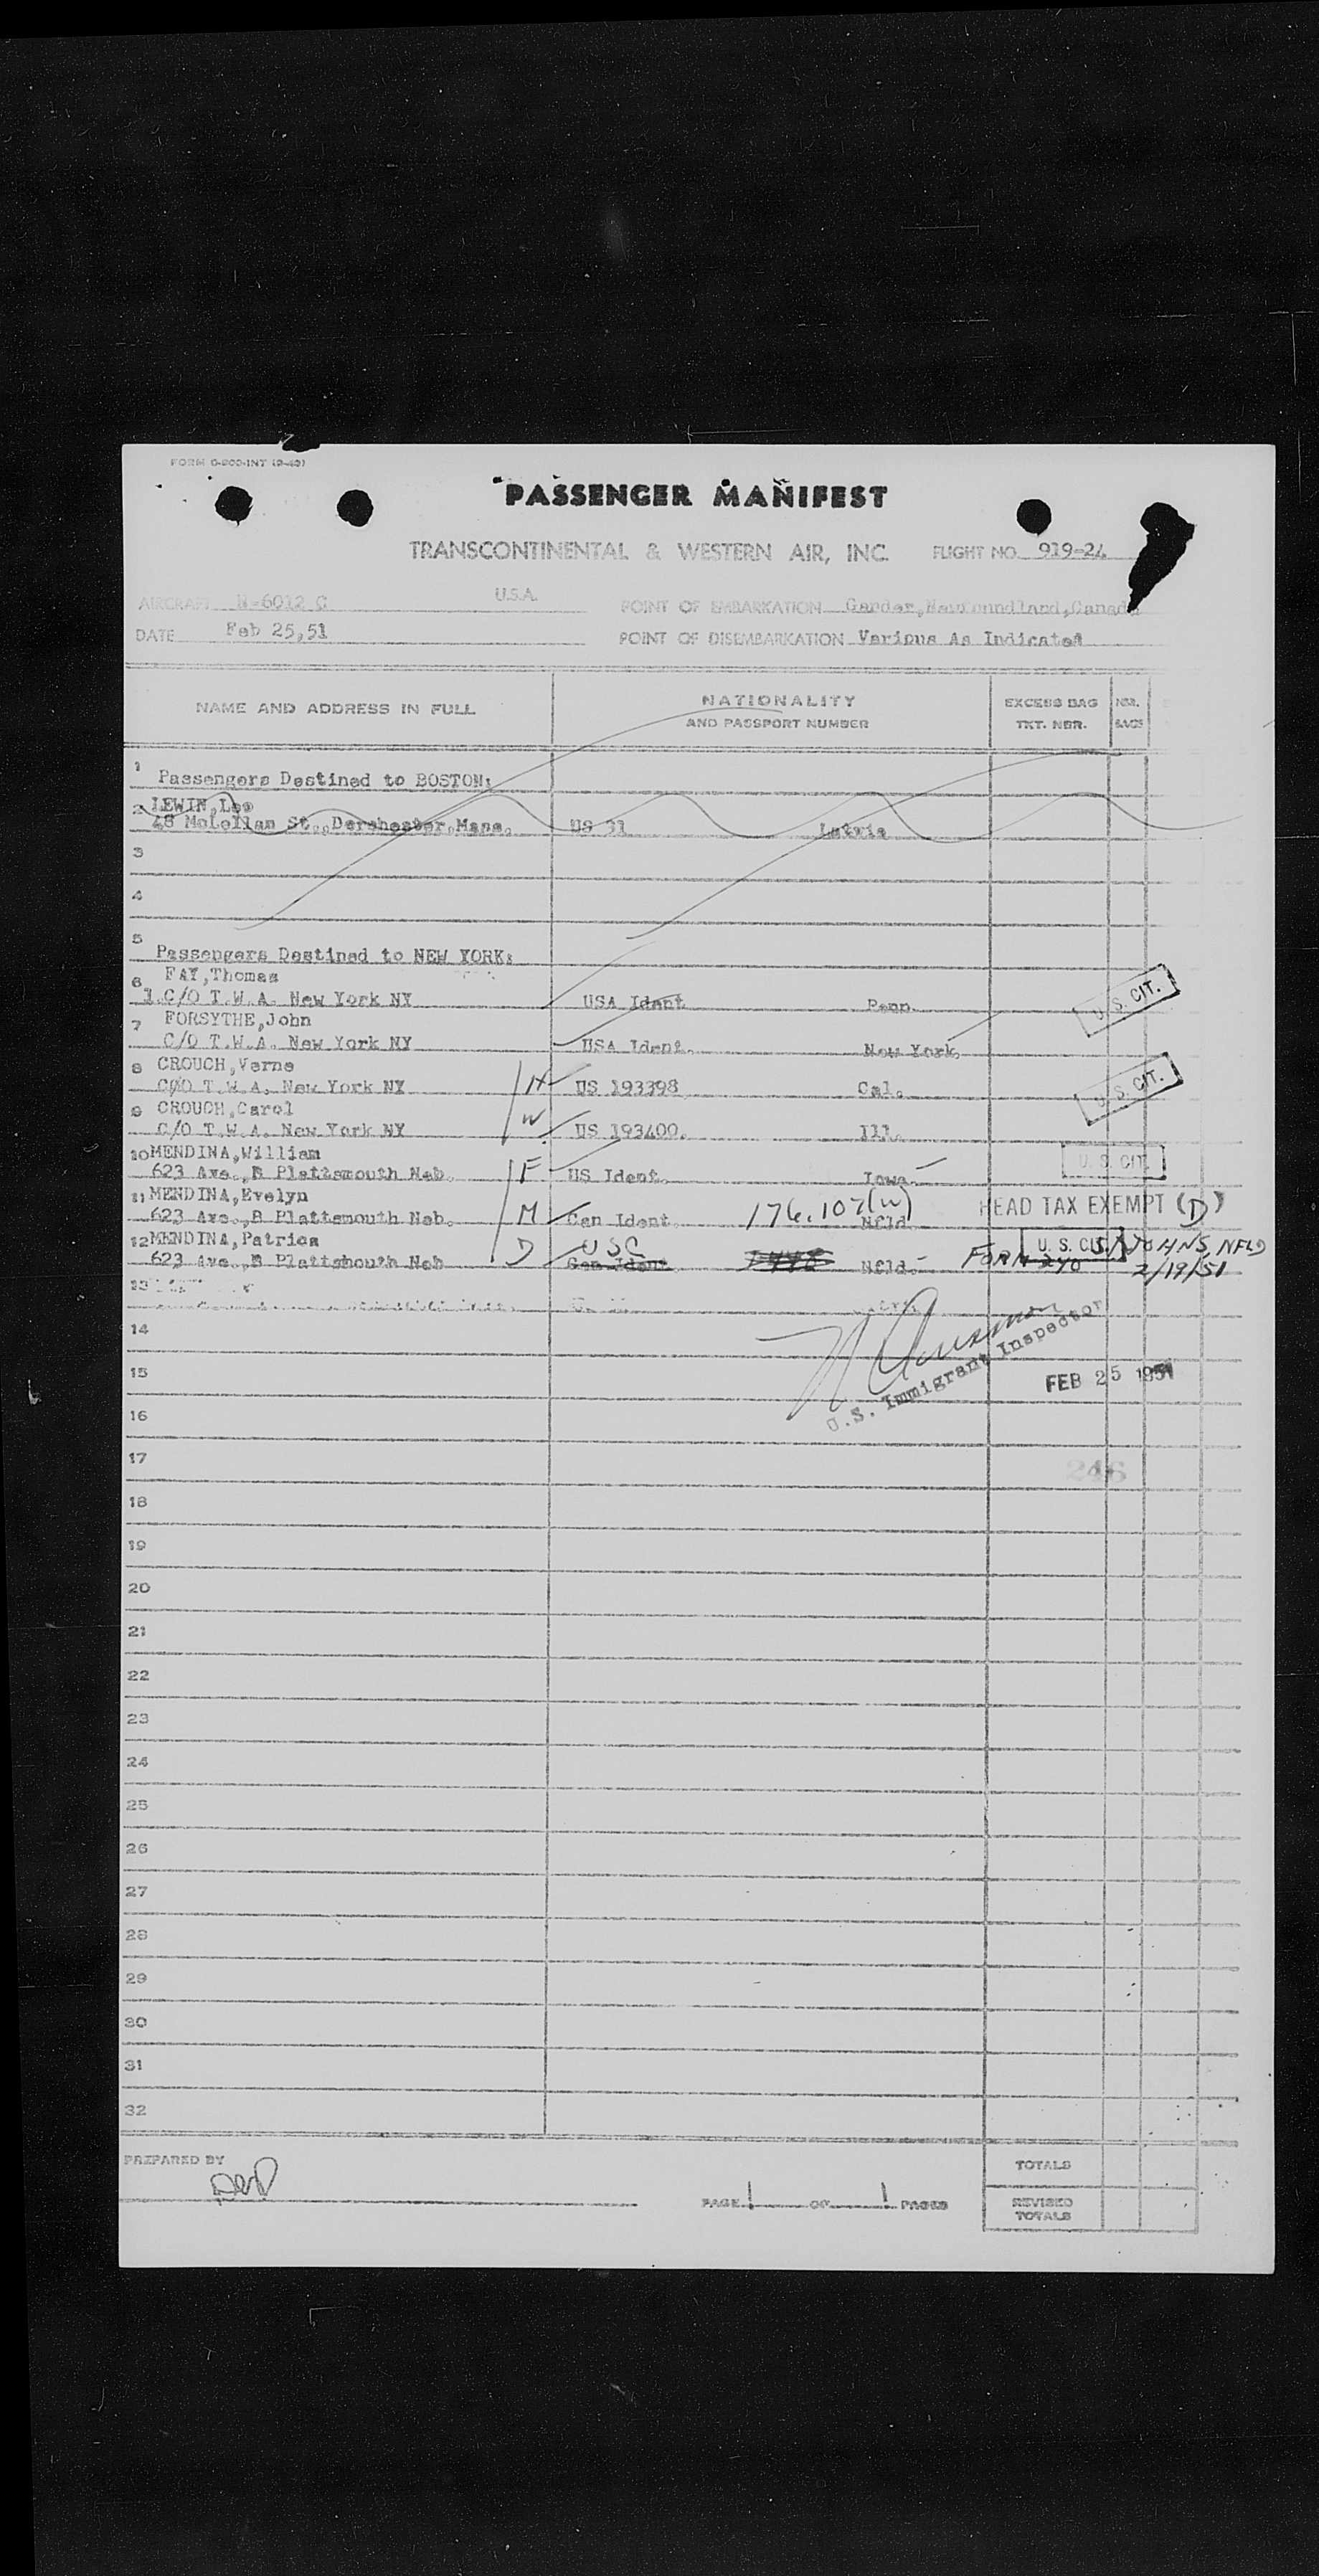 FORM O-200-INT (9-49)
PASSENGER MANIFEST
TRANSCONTINENTAL & WESTERN AIR, INC. FLIGHT NO. 919-24
AIRCRAFT N-6012 C U.S.A. POINT OF EMBARKATION Gander,Newfoundland,Canada
DATE Feb 25,51 POINT OF DISEMBARKATION Various As Indicated
NAME AND ADDRESS IN FULL NATIONALITY AND PASSPORT NUMBER EXCESS BAG TKT. NBR. NBR. BAGS
1 Passengers Destined to BOSTON:
2 LEWIN,Leo
48 McLellan St.,Dorchester,Mass. US 31 Latvia
3
4
5 Passengers Destined to NEW YORK:
6 FAY,Thomas
1 C/O T.W.A. New York NY USA Ident Penn. U.S. CIT.
7 FORSYTHE,John
C/O T.W.A. New York NY USA Ident. New York.
8 CROUCH,Verne
C/O T.W.A. New York NY H US 193398 Cal. U.S. CIT.
9 CROUCH,Carol
C/O T.W.A. New York NY W US 193400. Ill.
10 MENDINA,William
623 Ave.,B Plattsmouth Neb. F US Ident. Iowa. U.S. CIT.
11 MENDINA,Evelyn
623 Ave.,B Plattsmouth Neb. M Can Ident. 176.107(W) Nfld. HEAD TAX EXEMPT (D)
12 MENDINA,Patrica
623 Ave.,B Plattshouth Neb D USC Can Ident Nfld. FORM 240 U.S. CIT. ST JOHNS, NFLD
2/19/51
13
14
U.S. Immigrant Inspector
15 FEB 25 1951
16
17 246
18
19
20
21
22
23
24
25
26
27
28
29
30
31
32
PREPARED BY TOTALS
PAGE 1 OF 1 PAGES REVISED TOTALS